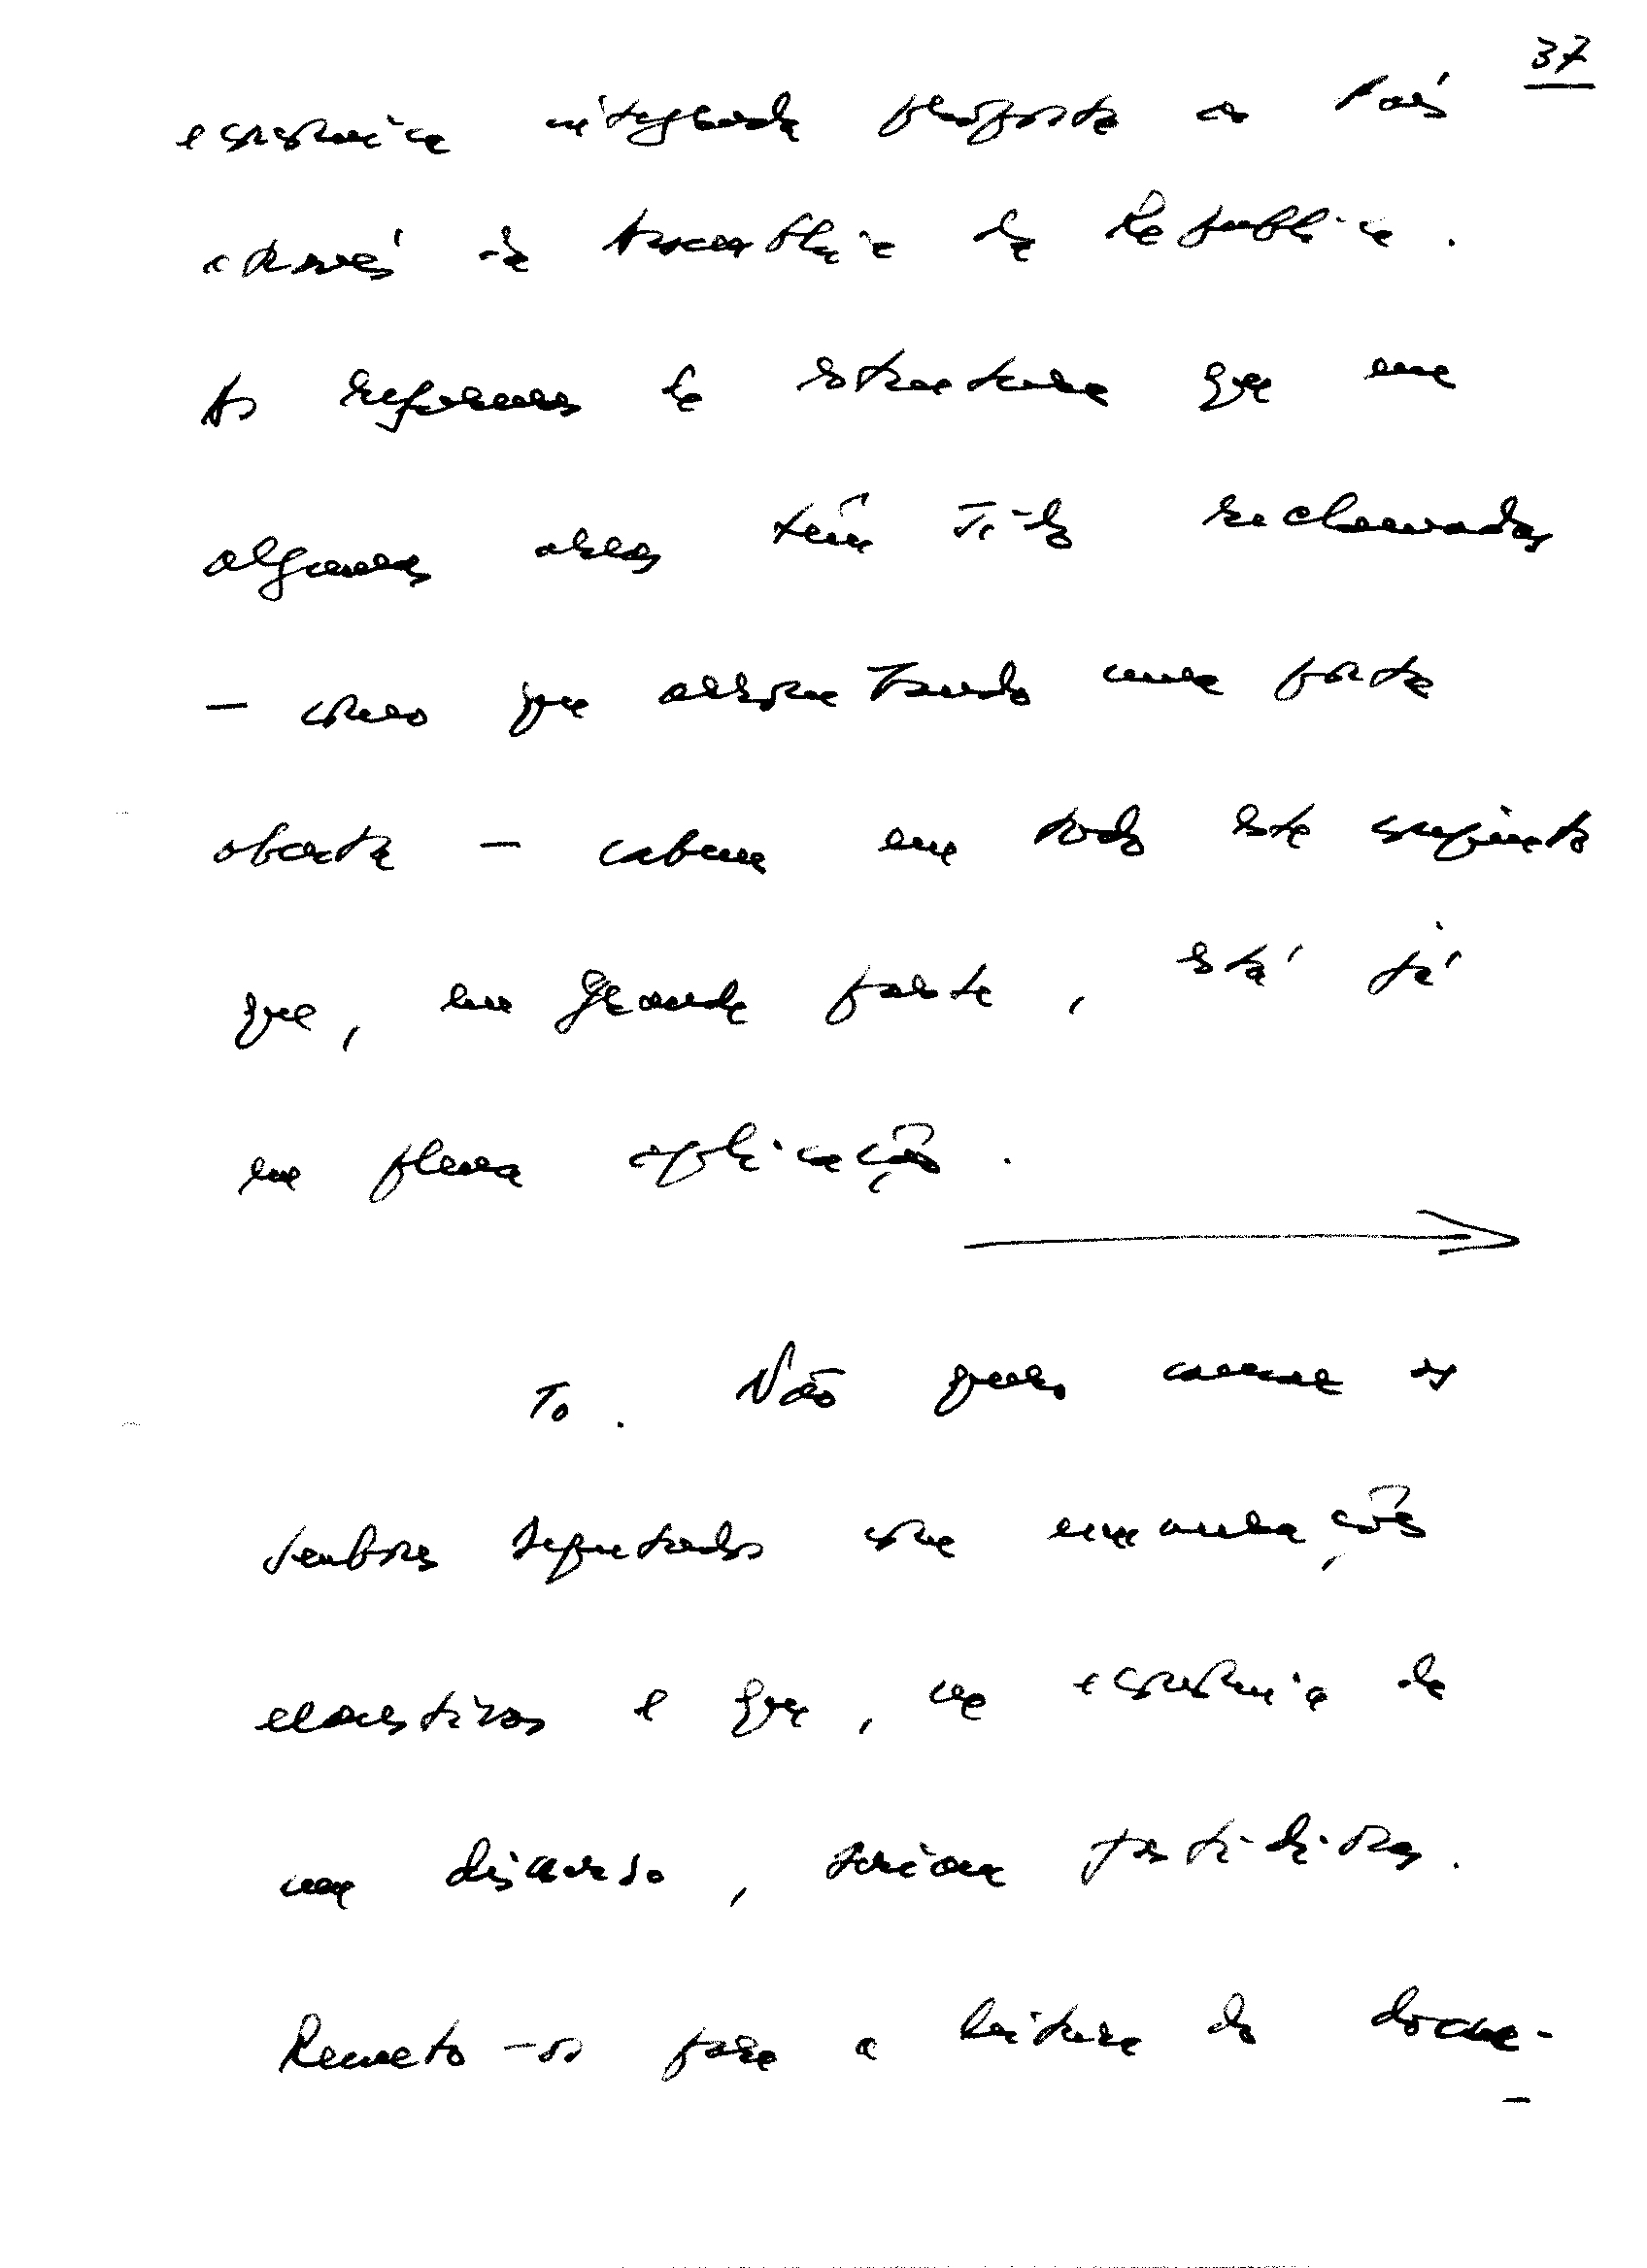 37
e coerência integrada proposta ao País
através da Assembleia da República.
As reformas de estrutura que em
algumas áreas têm sido reclamadas
– como que arrombando uma porta
aberta – cabem em todo este conjunto
que, em grande parte, está já
em plena aplicação.
To. Não quero cansar os
senhores deputados com enumerações
exaustivas e que, na economia de
um discurso, seriam fastidiosas.
Remeto-os para a leitura do docu-